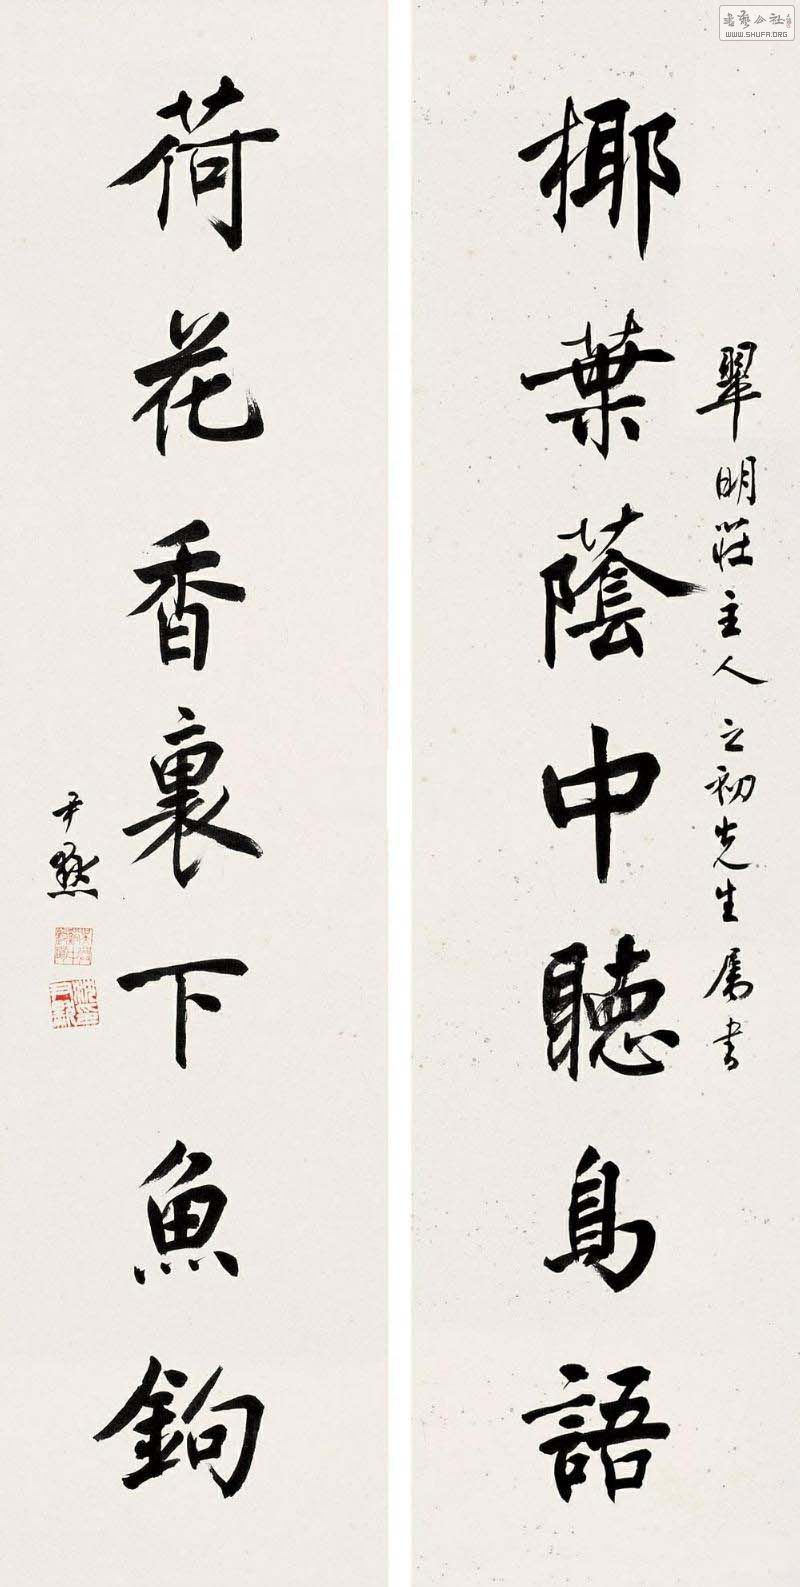 椰葉蔭中聽鳥語
翠明莊主人之初先生屬書
荷花香裏下魚鉤
尹默
書藝公社
WWW.SHUFA.ORG